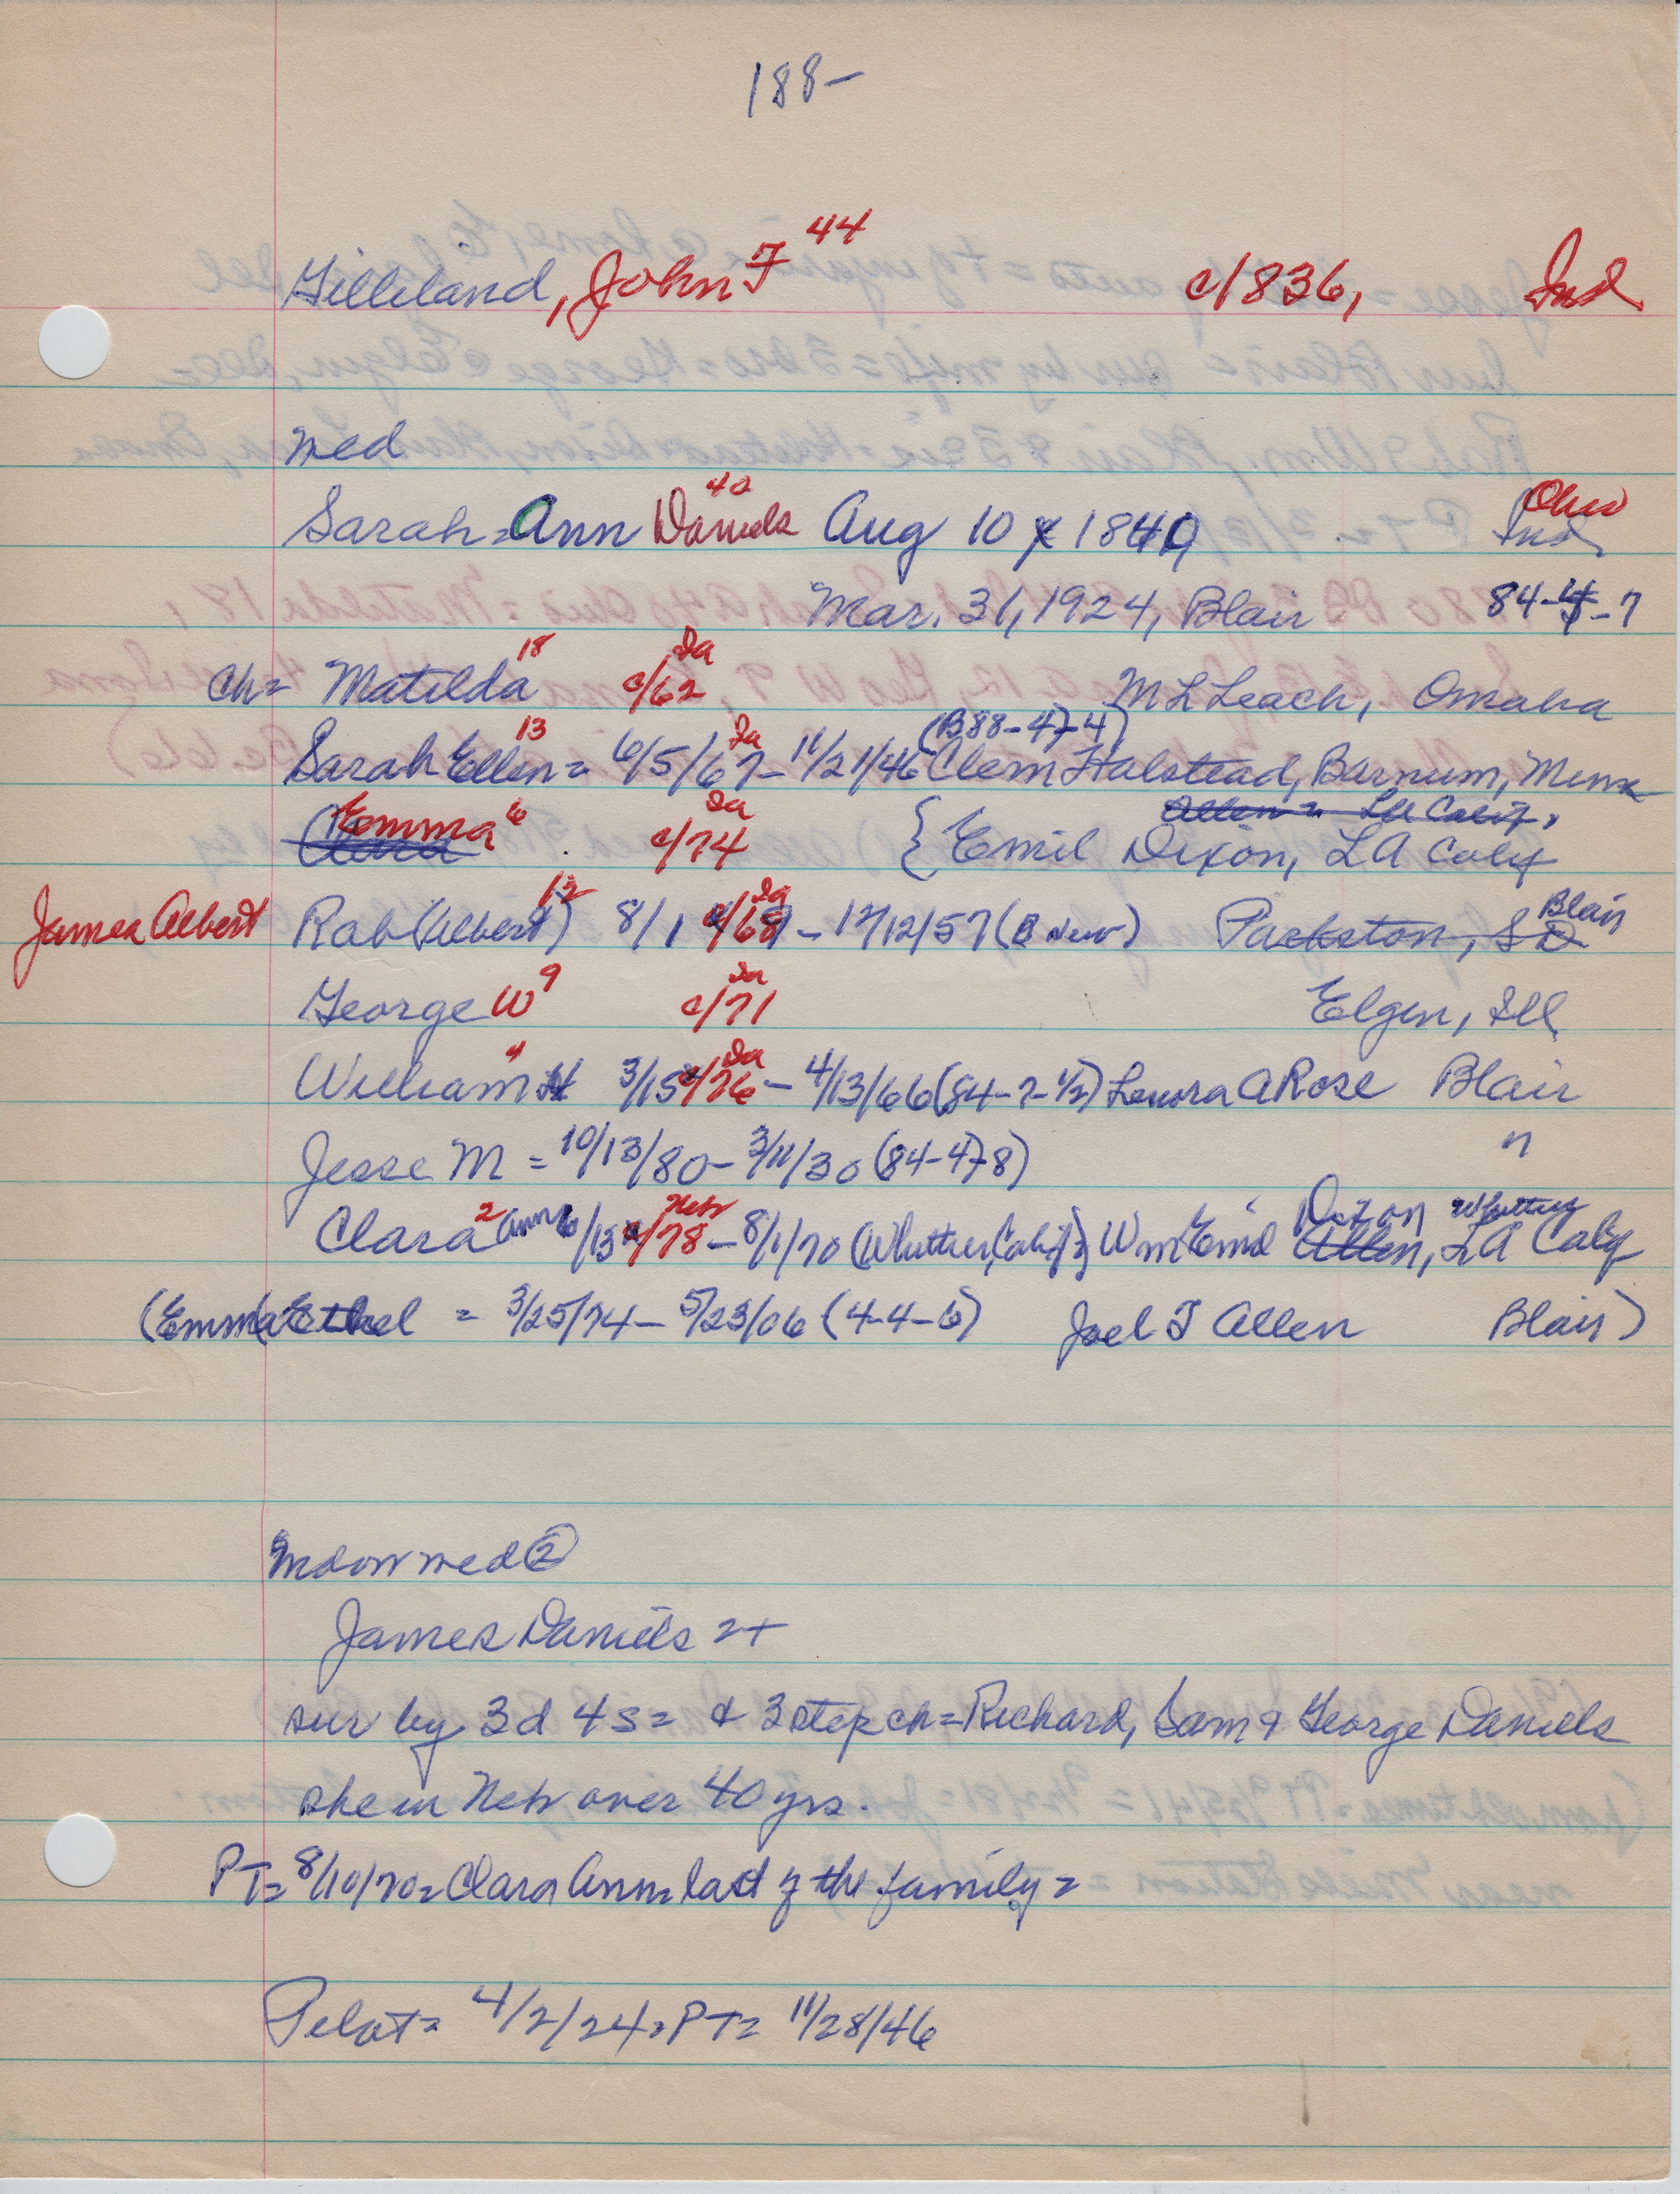 188-
44
Gilleland, John F c/836, Ind
med
40 Ohio
Sarah = Ann Daniels Aug 10 1840 Ind
Mar. 31, 1924, Blair 84-4-7
18 Ia
Ch= Matilda c/62 M L Leach, Omaha
13 Ia (B88-4)-4)
Sarah Ellen = 6/5/67 - 11/21/46 Clem Halstead, Barnum, Minn
Emma 6 Ia Allen = LA Calif,
Clara c/74 { Emil Dixon, LA Calif
12 Ia Blair
James Albert Rob (Albert) 8/1 c/68 - 12/12/57 (B New) Packston, SD
9 Ia
George W c/71 Elgen, Ill
4 Ia
William H 3/15 c/76 - 4/13/66 (84-7-1/2) Lenora A Rose Blair
Jesse M = 10/13/80 - 3/11/30 (84-4)-8) "
2 Nebr Dixon Whittier
Clara Ann 6/13 c/78 - 8/1/70 (Whittier, Calif) Wm Emil Allen, LA Calif
(Emma Ethel = 3/25/74 - 5/23/06 (4-4-6) Joel T Allen Blair)
med ②
James Daniels 2+
sur by 3d 4s = & 3 step ch = Richard, Sam & George Daniels
she in Nebr over 40 yrs.
PT= 8/10/70 = Clara Ann = last of the family =
Pelot = 4/2/24, PT= 11/28/46